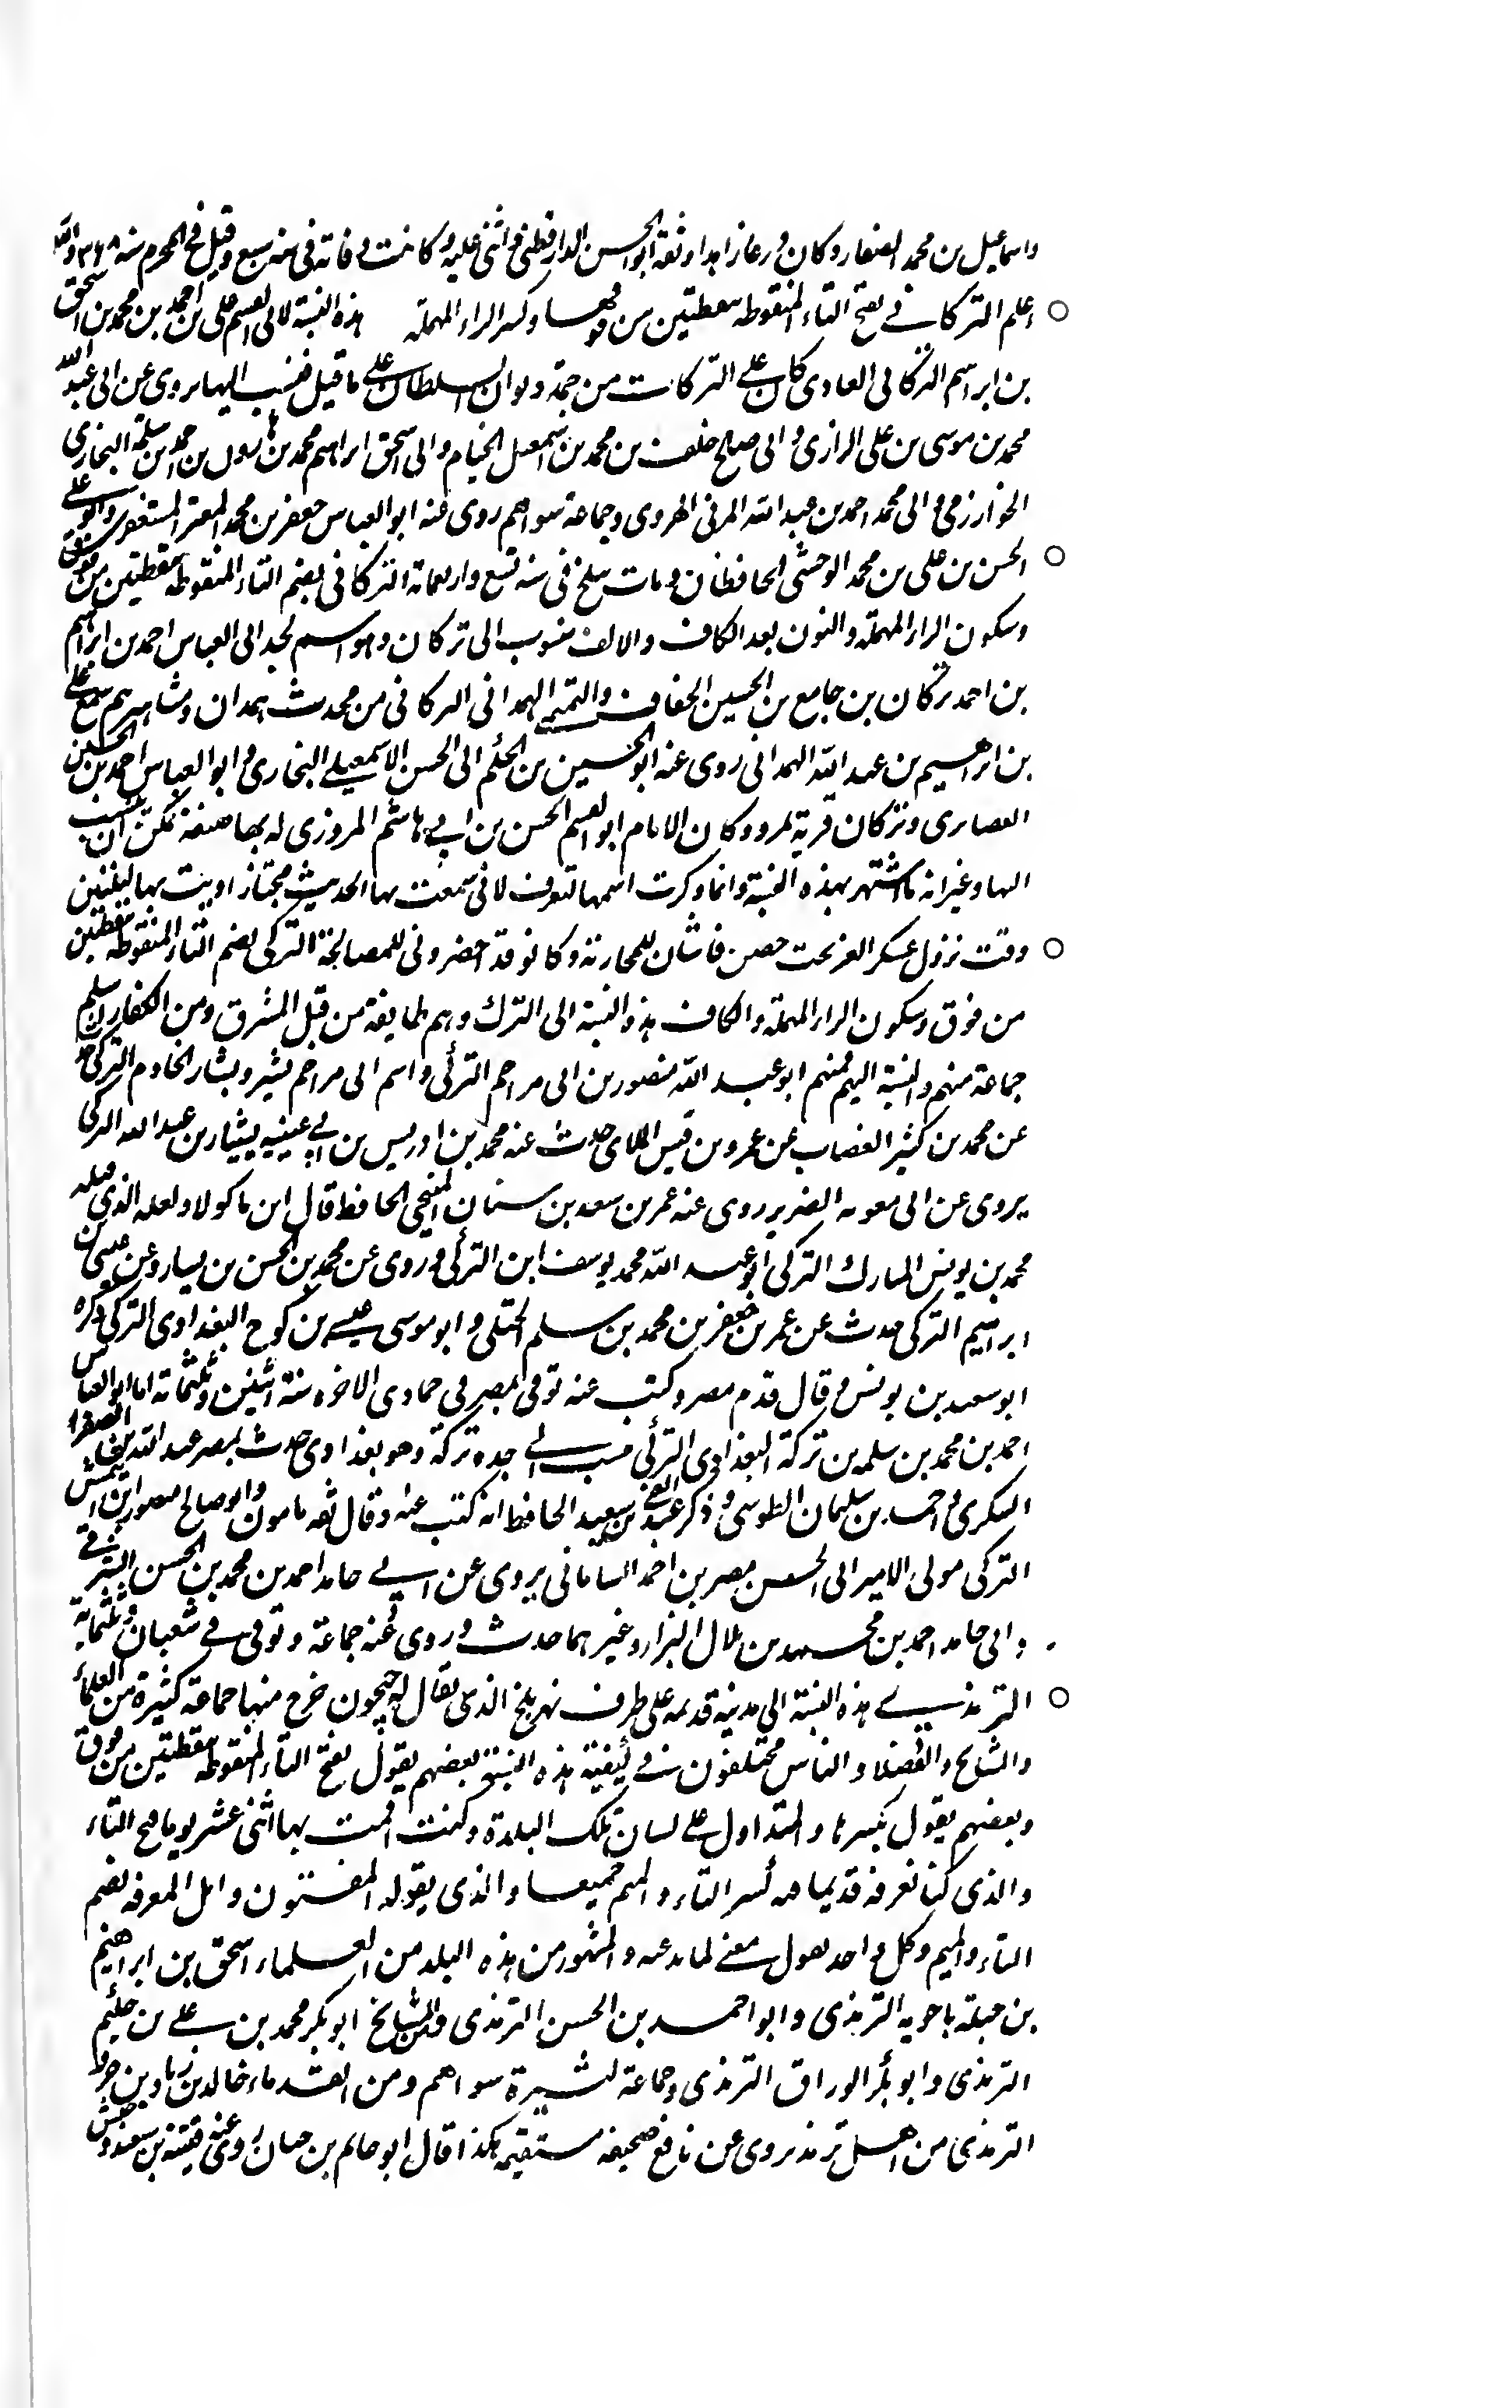 واسماعيل بن محمد الصفار وكان ورعا زاهدا وثقه ابو الحسن الدارقطني واثنى عليه وكانت وفاته في سنه سبع وقيل في المحرم سنه ٣٦٨ والله
اعلم التركاني بفتح التاء المنقوطه بنقطتين من فوقها وكسر الراء المهملة هذه النسبة لابى القسم على بن احمد بن محمد بن اسحق
بن ابراهيم التركانى العادى كان على التركات من جهة ديوان السلطان على ما قيل فنسب اليها يروى عن ابى عبد الله
محمد بن موسى بن على الرازى و ابى صالح خلف بن محمد بن اسمعيل الخيام و ابى اسحق ابراهيم محمد بن هارون بن احمد بن سلمة البخارى
الخوارزمى و ابى محمد احمد بن عبد الله المزنى الهروى وجماعة سواهم روى عنه ابو العباس جعفر بن محمد المعتز المستغفرى وابو على
الحسن بن على بن محمد الوخشى الحافظان ومات ببلخ فى سنه تسع واربعمائة التركانى بضم التاء المنقوطه بنقطتين من فوق
وسكون الراء المهملة والنون بعد الكاف والالف منسوب الى تركان وهو اسم لجد ابى العباس احمد بن ابراهيم
بن احمد تركان بن جامع بن الحسين الخفاف والتميمى الهمدانى التركانى من محدث همدان ومشاهيرهم سمع على
بن ابراهيم بن عبد الله الهمدانى روى عنه ابو الحسين بن الحكم ابى الحسن الاسمعيلى البخارى و ابو العباس احمد بن الحسين
العصارى وتركان قرية بمرو وكان الامام ابو القسم الحسن بن ابى هاشم المروزى له بها ضيعة يمكن ان ينسب
اليها وغير انه ما اشتهر بهذه النسبة وانما ذكرت اسمها لتعرف لانى سمعت بها الحديث مجتازا وبت بها ليلتين
وقت نزول عسكر الغز تحت حصن فاشان للمحاربة وكانوا قد احضرونى للمصالحة التركى بضم التاء المنقوطه بنقطتين
من فوق وسكون الراء المهملة والكاف هذه النسبة الى الترك وهم طايفة من قبل المشرق ومن الكفار اسلم
جماعة منهم والنسبة اليهم فمنهم ابو عبد الله منصور بن ابى مزاحم التركى واسم ابى مزاحم بشير وبشار الخادم التركى حدث
عن محمد بن كثير القصاب عن عمرو بن قيس الملائى حدث عنه محمد بن ادريس بن ابى عيينه بشار بن عبد الله التركى
يروى عن ابى معويه الضرير روى عنه عمر بن سعد بن سنان المنبجى الحافظ قال ابن ماكولا ولعله الذى قبله
محمد بن يونس المبارك التركى ابو عبد الله محمد يوسف ابن التركى وروى عن محمد بن الحسن بن يسار وعن عيسى بن
ابراهيم التركى حدث عن عمر بن جعفر بن محمد بن سلم الختلى و ابو موسى عيسى بن كوح البغدادى التركى ذكره
ابو سعيد بن يونس و قال قدم مصر وكتب عنه توفى بمصر فى جمادى الاخره سنة اثنين وثلثمائة اما ابو العباس
احمد بن محمد بن سلمه بن تركة البغدادى التركى نسب الى جده تركة وهو بغدادى حدث بمصر عبد الله بن الصقر
السكرى و احمد بن سليمان الطوسى و ذكر عبد الغنى بن سعيد الحافظ انه كتب عنه وقال ثقه مامون وابو صالح منصور
التركى مولى الامير ابى الحسن نصر بن احمد السامانى يروى عن ابى حامد احمد بن محمد بن الحسن الشرقى
و ابى حامد احمد بن محمد بن بلال البزار وغيرهما حدث و روى عنه جماعة وتوفى فى شعبان وثلثمائة
الترمذى هذه النسبة الى مدينة قديمه على طرف نهر بلخ الذى يقال له جيحون خرج منها جماعة كثيرة من العلماء
والمشايخ والفضلا والناس مختلفون فى كيفية هذه النسبة بعضهم يقول بفتح التاء المنقوطه بنقطتين من فوق
وبعضهم يقول بكسرها والمتداول على لسان تلك البلدة وكنت اقمت بها اثنى عشر يوما فتح التاء
والذى كنا نعرفه قديما منه كسر التاء والميم جميعا والذى يقوله المفتنون واهل المعرفه بضم
التاء والميم وكل واحد يقول معنى لما يدعيه والمشهور من هذه البلد من العلماء اسحق بن ابراهيم
بن جبلة باجويه الترمذى وابو احمد بن الحسن الترمذى ومن المشايخ ابو بكر محمد بن على بن حكيم
الترمذى و ابو بكر الوراق الترمذى وجماعة كثيرة سواهم ومن القدماء خالد بن زياد بن جرو
الترمذى من اهل ترمذ يروى عن نافع صحيفه مستقيمه هكذا قال ابو حاتم بن حبان روى عنه قتيبه بن سعيد